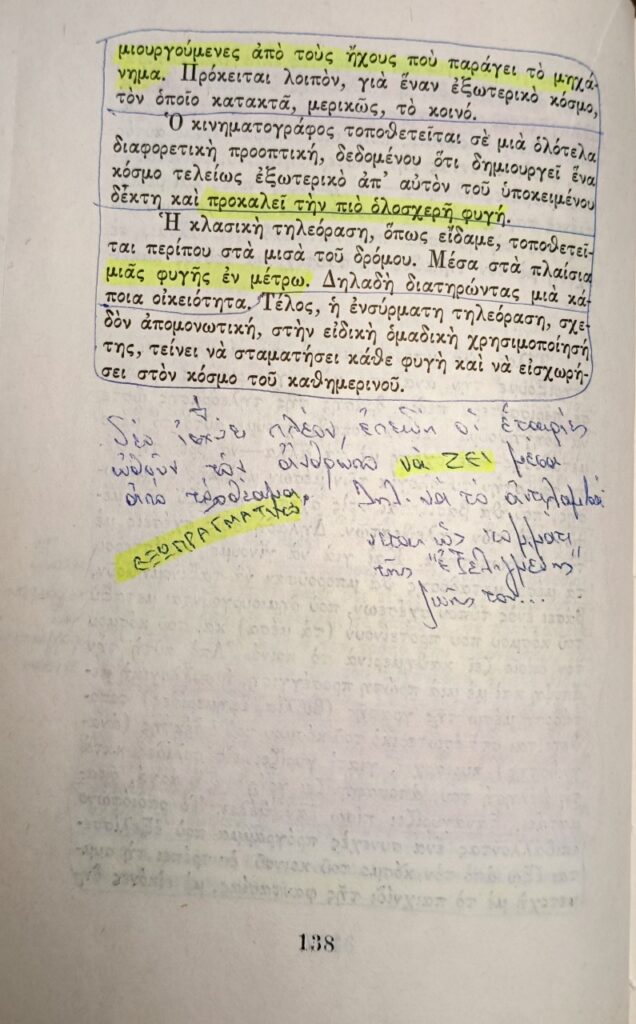 μιουργούμενες ἀπὸ τοὺς ἤχους ποὺ παράγει τὸ μηχά-
νημα. Πρόκειται λοιπόν, γιὰ ἕναν ἐξωτερικὸ κόσμο,
τὸν ὁποῖο κατακτᾶ, μερικῶς, τὸ κοινό.
Ὁ κινηματογράφος τοποθετεῖται σὲ μιὰ ὁλότελα
διαφορετικὴ προοπτική, δεδομένου ὅτι δημιουργεῖ ἕνα
κόσμο τελείως ἐξωτερικὸ ἀπ’ αὐτὸν τοῦ ὑποκειμένου
δέκτη καὶ προκαλεῖ τὴν πιὸ ὁλοσχερῆ φυγή.
Ἡ κλασικὴ τηλεόραση, ὅπως εἴδαμε, τοποθετεῖ-
ται περίπου στὰ μισὰ τοῦ δρόμου. Μέσα στὰ πλαίσια
μιᾶς φυγῆς ἐν μέτρω. Δηλαδὴ διατηρώντας μιὰ κά-
ποια οἰκειότητα. Τέλος, ἡ ἐνσύρματη τηλεόραση, σχε-
δὸν ἀπομονωτική, στὴν εἰδικὴ ὁμαδικὴ χρησιμοποίησή
της, τείνει νὰ σταματήσει κάθε φυγὴ καὶ νὰ εἰσχωρή-
σει στὸν κόσμο τοῦ καθημερινοῦ.
Δὲν ἰσχύει πλέον, ἐπειδὴ οἱ ἑταιρίες
ὠθοῦν τὸν ἄνθρωπο νὰ ΖΕΙ μέσα
ἀπὸ τὸ θέαμα. Δηλ. νὰ τὸ ἀντιλαμβά
νεται ὡς κομμάτι
τῆς "ἐξελιγμένης"
ζωῆς του...
ΕΞΩΠΡΑΓΜΑΤΙΚΟ
138